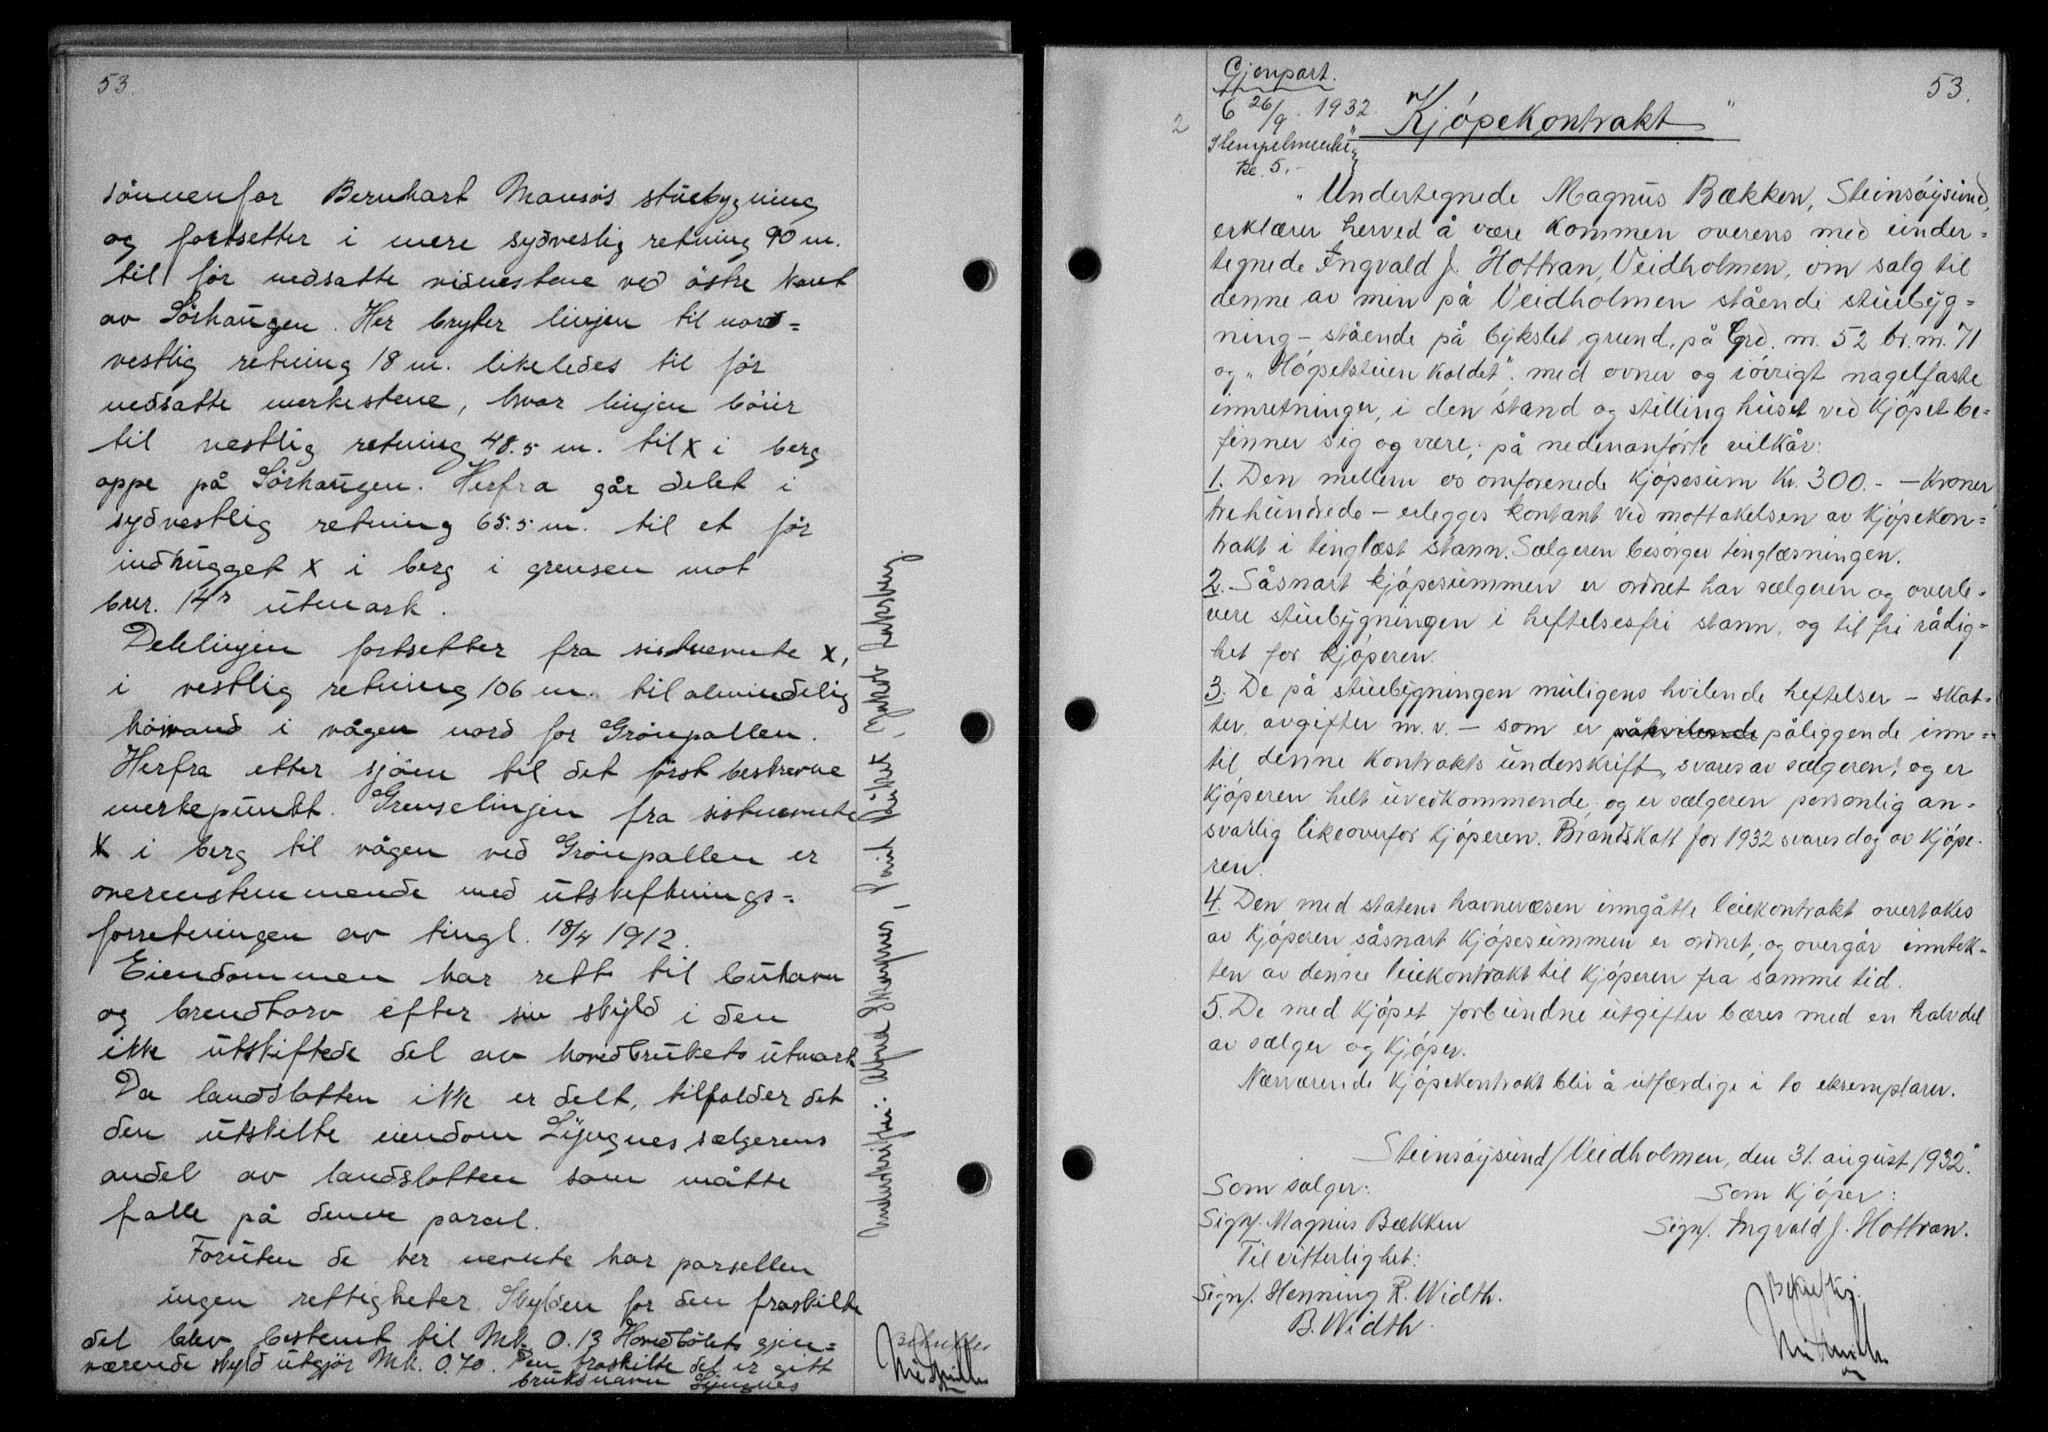 53.
sönnenfor Bernhart Mausös stuebygning
og fortsetter i mere sydvestlig retning 90 m.
til før nedsatte vidnestene ved östre kant
av Sörhaugen. Her bryter linjen til nord=
vestlig retning 18 m. likeledes til før
nedsatte merkestene, hvor linjen böier
til vestlig retning 48.5 m. til x i berg
oppe på Sörhaugen. Herfra går delet i
sydvestlig retning 65.5 m. til et før
indhugget x i berg i grensen mot
bnr. 14s utmark.
Delelinjen fortsetter fra sistnevnte x,
i vestlig retning 106 m. til almindelig
höivand i vågen nord for Grönpallen.
Herfra etter sjöen til det först beskrevne
merkepunkt. Grenselinjen fra sistnevnte
x i berg til vågen ved Grönpallen er
overenstemmende med utskiftnings=
forretningen av tingl. 18/4 1912.
Eiendommen har rett til buhavn
og brendtorv efter sin skyld i den
ikke utskiftede del av hovedbrukets utmark
Da landslotten ikke er delt, tilfalder det
den utskilte eiendom Lyngnes sælgerens
andel av landslotten som måtte
falle på denne parcel.
Foruten de her nevnte har parsellen
ingen rettigheter. Skylden for den fraskilte
del blev bestemt til Mk. 0.13 Hovedbölets gjen=
værende skyld utgjör Mk. 0.70. Den fraskilte del er gitt
bruksnavn Lyngnes
Underskrifter: Alfred
Bekreftes
53.
Gjenpart.
6 26/9. 1932
2
Stempelmerke
kr. 5.-
"Kjöpekontrakt"
"Undertegnede Magnus Bækken, Steinsöysund,
erklærer herved å være kommen overens med under=
tegnede Ingvald J. Hottran, Veidholmen, om salg til
denne av min på Veidholmen stående stuebyg=
ning - stående på bykslet grund, på Grd. nr. 52 br. nr. 71
og "Höpelstuen kaldet". med ovner og iövrigt nagelfaste
innretninger, i den stand og stilling huset ved kjöpet be=
finner sig og være; på nedenanförte vilkår:
1. Den mellem os omforenede kjöpesum Kr. 300.- - Kroner
trehundrede - erlegges kontant ved mottakelsen av kjöpekon=
trakt i tinglæst stann. Sælgeren besörger tinglæsningen.
2. Såsnart kjöpesummen er ordnet har sælgeren og overle=
vere stuebygningen i heftelsesfri stann, og til fri rådig=
het for kjöperen.
3. De på stuebygningen muligens hvilende heftelser - skat=
ter, avgifter m.v. - som er påhvilende påliggende inn=
til denne kontrakts underskrift, svares av sælgeren; og er
kjöperen helt uvedkommende og er sælgeren personlig an=
svarlig likeoverfor kjöperen. Brandskatt for 1932 svares dog av kjöpe=
ren.
4. Den med statens havnevæsen inngåtte leiekontrakt overtakes
av kjöperen såsnart kjöpesummen er ordnet, og overgår inntek=
ten av denne leiekontrakt til kjöperen fra samme tid.
5. De med kjöpet forbundne utgifter bæres med en halvdel
av sælger og kjöper.
Nærværende kjöpekontrakt blir å utfærdige i to eksemplarer.
Steinsöysund/Veidholmen, den 31. august 1932".
Som sælger: Som kjöper:
Sign. Magnus Bækken Sign. Ingvald J. Hottran.
Til vitterlighet:
Sign. Henning R. Width.
B. Width.
Bekreftes: